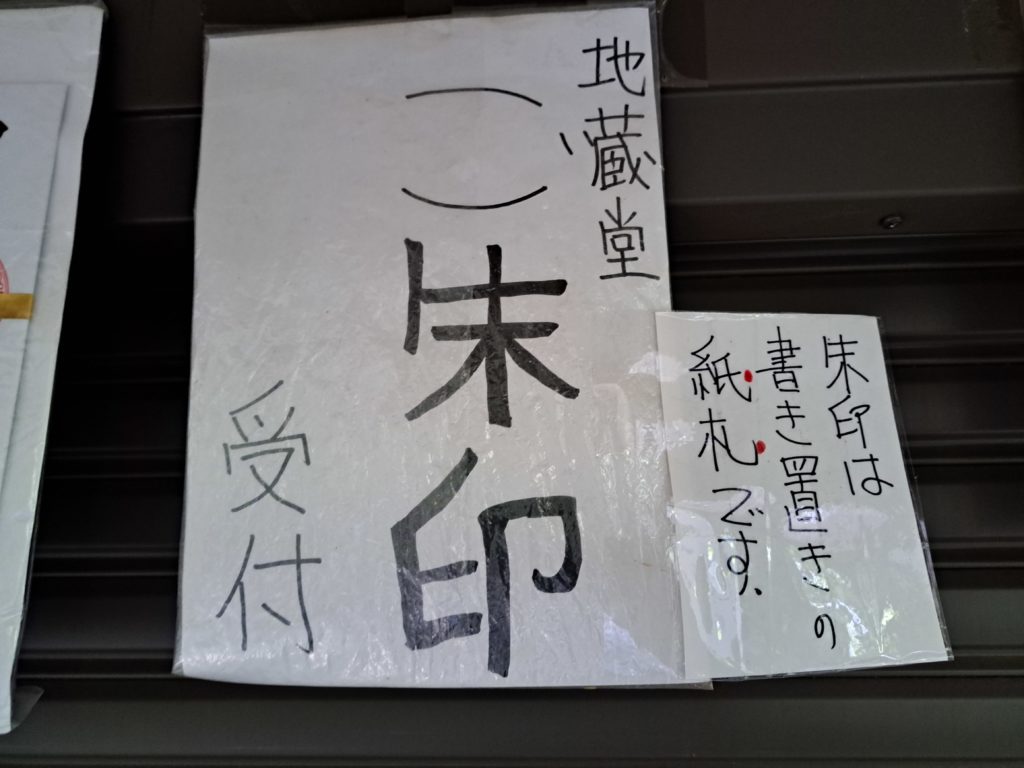 地蔵堂
( )朱印
受付
朱印は
書き置きの
紙札です、